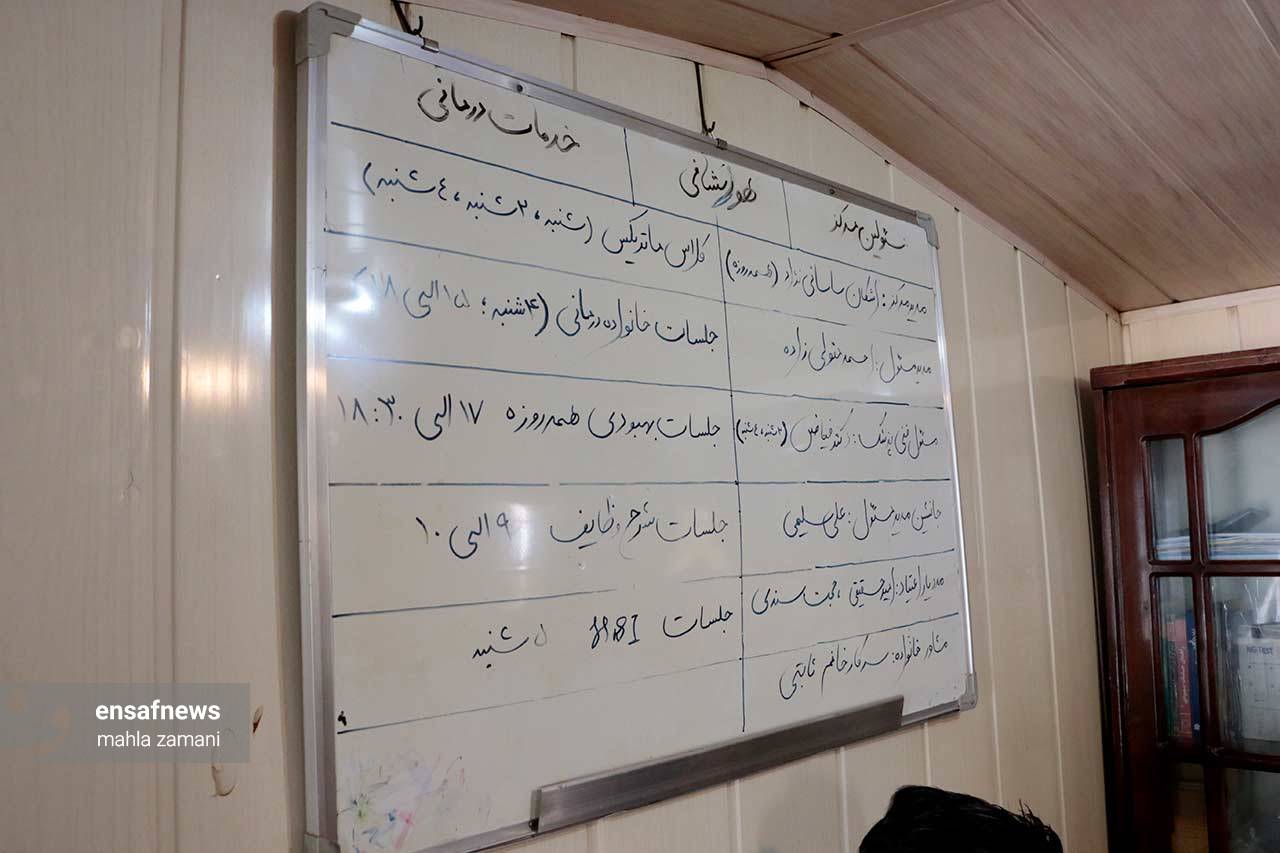 خدمات درمانی
هوالشافی
مسئولین مرکز
مدیر مرکز: اشکان ساسانی نژاد (همه روزه)
مدیر مسئول: احمد متولی زاده
مسئول فنی پزشک: دکتر فیاض (۲شنبه، ٤شنبه)
جانشین مدیر مسئول: علی سلیمی
مددیار اعتیاد: امیر حقیقی، حجت سندی
مشاور خانواده: سرکار خانم ثابتی
کلاس ماتریکس (شنبه، ۲شنبه، ٤شنبه)
جلسات خانواده درمانی (۳شنبه؛ ۱۵ الی ۱۸
جلسات بهبودی همه روزه ۱۷ الی ۱۸:۳۰
جلسات شرح وظایف ۹ الی ۱۰
جلسات ۵ شنبه
ensafnews
mahla zamani
NG TEST